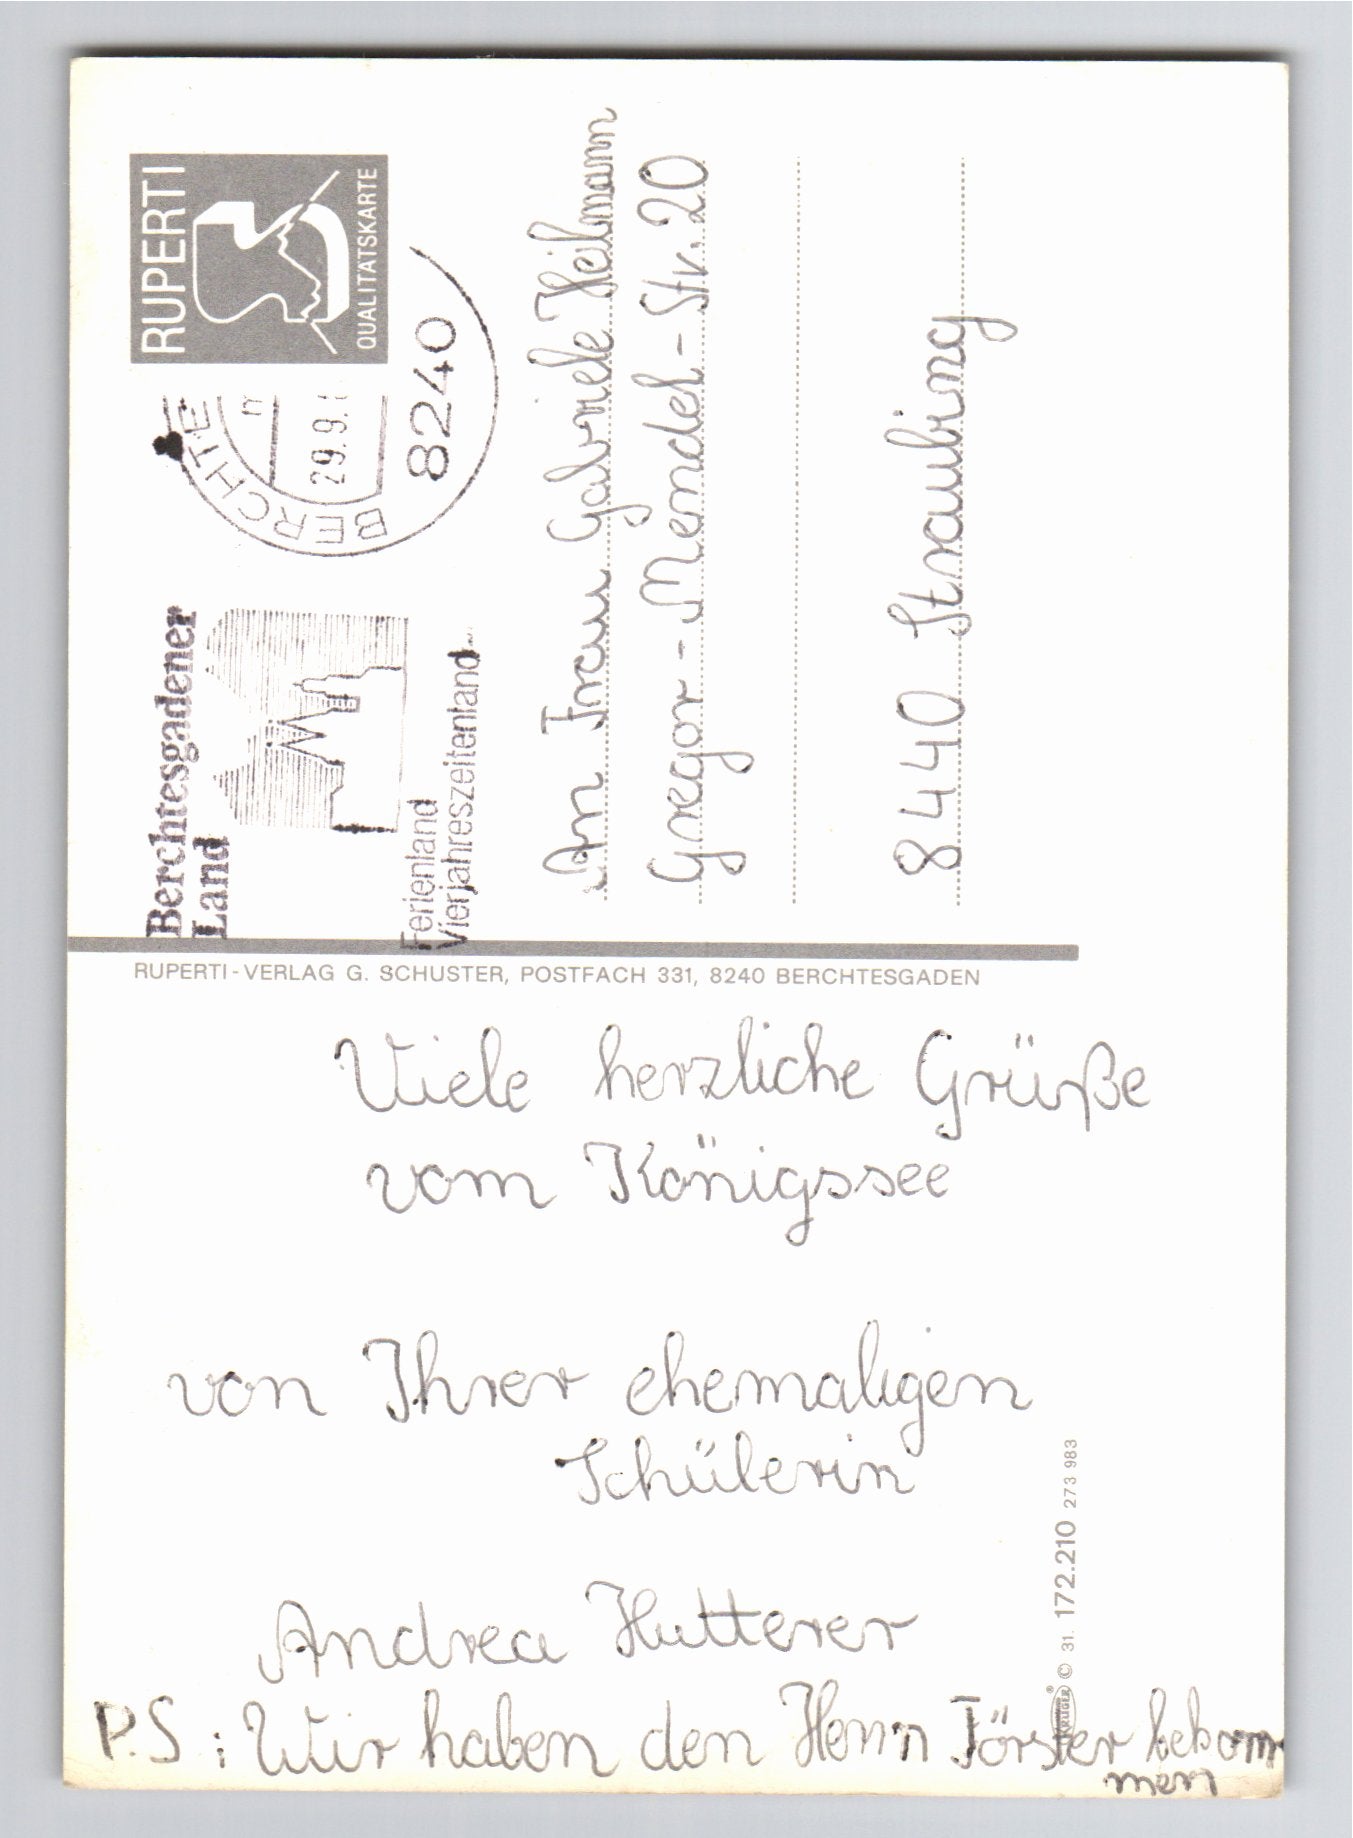 RUPERTI
QUALITÄTSKARTE
BERCHTE
29.9.
8240
Berchtesgadener
Land
Ferienland
Vierjahreszeitenland
An Frau Gabriele Heilmann
Gregor-Mendel-Str. 20
8440 Straubing
RUPERTI-VERLAG G. SCHUSTER, POSTFACH 331, 8240 BERCHTESGADEN
Viele herzliche Grüße
vom Königssee
von Ihrer ehemaligen
Schülerin
Andrea Hutterer
P.S: Wir haben den Herrn Förster bekom
men
KRÜGER © 31. 172.210 273 983